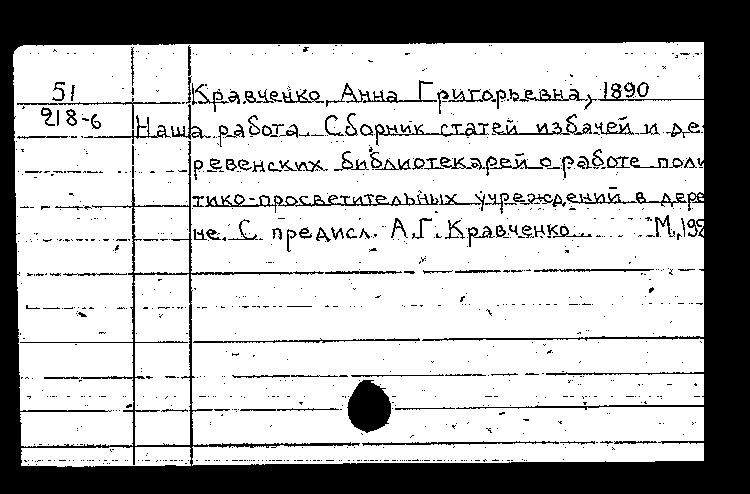 51
218-6
Кравченко, Анна Григорьевна, 1890
Наша работа. Сборник статей избачей и де-
ревенских библиотекарей о работе поли
тико-просветительных учреждений в дере
не. С предисл. А.Г. Кравченко... М., 192